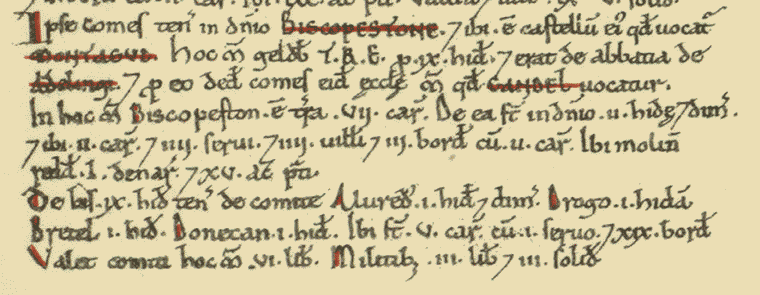 Ipse comes ten̄ in dn̄io BISCOPESTONE. ⁊ ibi. ē castellū ei᷒ qd̄ uocat᷑
MONTAGUD. Hoc m̄ geldb̄ T.R.E. p. ix. hid̄. ⁊ erat de abbatia de
Adelingi. ⁊ p eo ded̄ comes eid̄ eccłę m̄ qd̄ CANDEL uocatur.
In hoc m̄ Biscopeston. ē tr̄a .VII. car̄. De ea st̄ in dn̄io .ii. hidę ⁊ dim̄.
⁊ ibi. ii. car̄. ⁊ iiii. serui. ⁊ iiii. uiłłi ⁊ iii. bord̄ cū .ii. car̄. Ibi molin̄
redd̄ .l. denar̄. ⁊ xv. ac̄ p̄ti.
De his .ix. hid̄ ten̄ de comite Alured̄ .i. hid̄ ⁊ dim̄. Drogo .i. hidā
Bretel .i. hid̄. Donecan .i. hid̄. Ibi st̄ .v. car̄ cū .i. seruo. ⁊ xix. bord̄
Valet comiti hoc m̄ .vi. lib̄. Militib; .iii. lib̄ ⁊ iii. solid̄